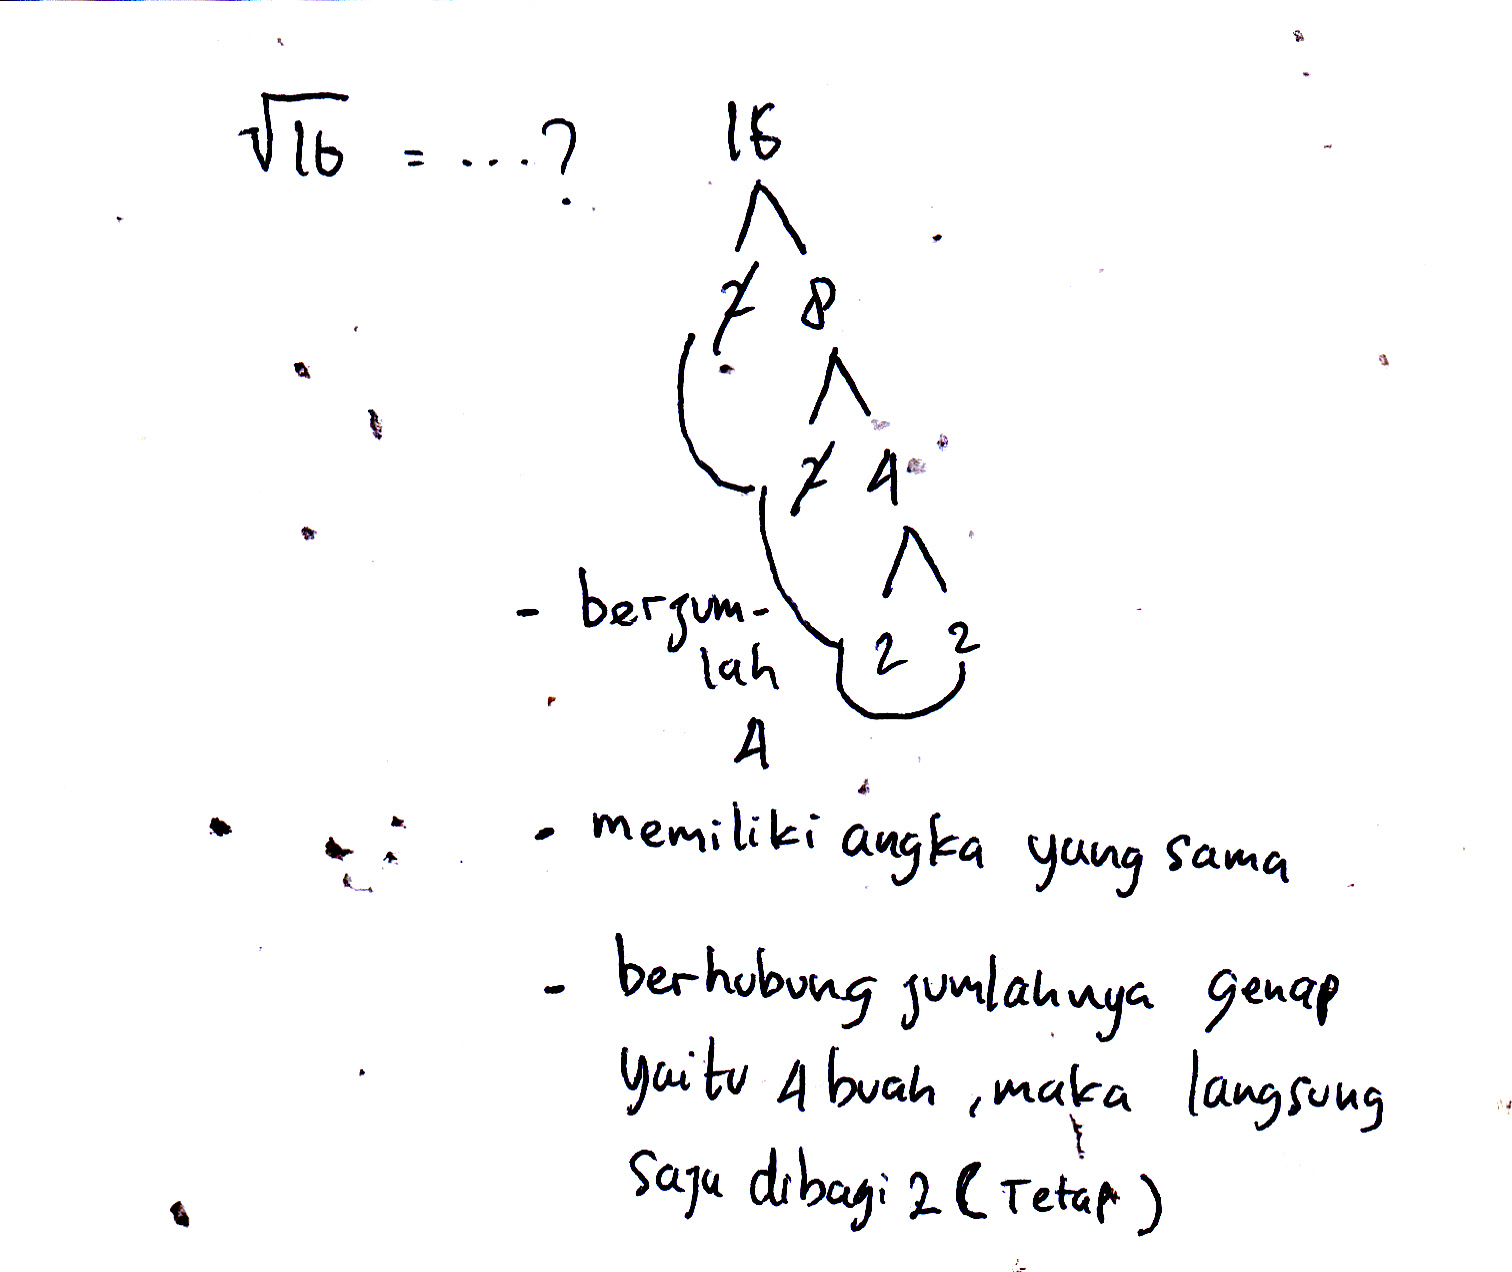 √16 = ....?
16
2 8
2 4
2 2
- berjum-
lah
4
- memiliki angka yang sama
- berhubung jumlahnya genap
yaitu 4 buah, maka langsung
saja dibagi 2 (Tetap)